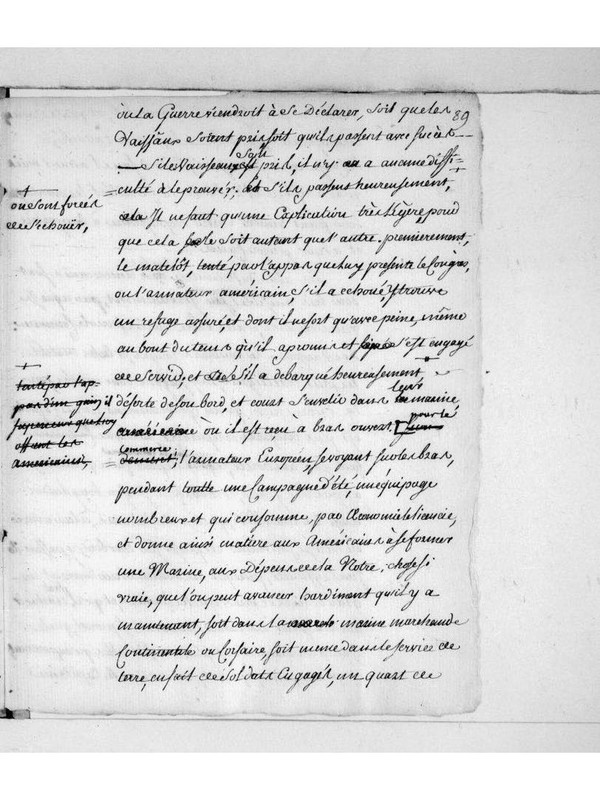 89
où la Guerre viendroit à se Déclarer, soit que les
Vaissaux soient pris soit qu'ils passent avec succès
Si le Vaisseau est soit pris, il n'y en a aucune diffi-
culté à le prouver, et s'ils passent heureusement,
ou sont forcés
de s'echouër,
cela Il ne faut qu'une Explication très légère, pour
que cela soit autant que l'autre. premierement,
le matelôt, tenté par l'appas que luy presente le Congrès,
ou l'armateur américain, s'il a echoué, y trouve
un refuge assuré et dont il ne sort qu'avec peine, même
au bout du tems qu'il a promis et s'est engagé
de servir, et s'il a debarqué heureusement
tenté par l'ap-
pas d'un gain
superieur que luy
offrent les
americains,
il déserte de son bord, et court s'enrolér dans la leur marine
américaine où il est reçu à bras ouvert,
commerce;
l'armateur Européen, se voyant sur les bras,
pendant toutte une Campagne d'été, un équipage
nombreux et qui consomme, par Œconomie le licencie,
et donne ainsi matière aux Américains à se former
une Marine, aux Dépens de la Notre; chose si
vraie, que l'on peut avancer hardiment qu'il y a
maintenant, soit dans la marine marchande
Continentale ou Corsaire, soit meme dans le service de
terre, en fait de Soldats Engagés, un quart de